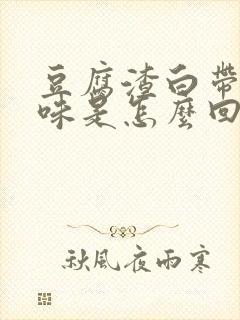 豆腐渣白帶
味是怎麼回
秋風夜雨寒